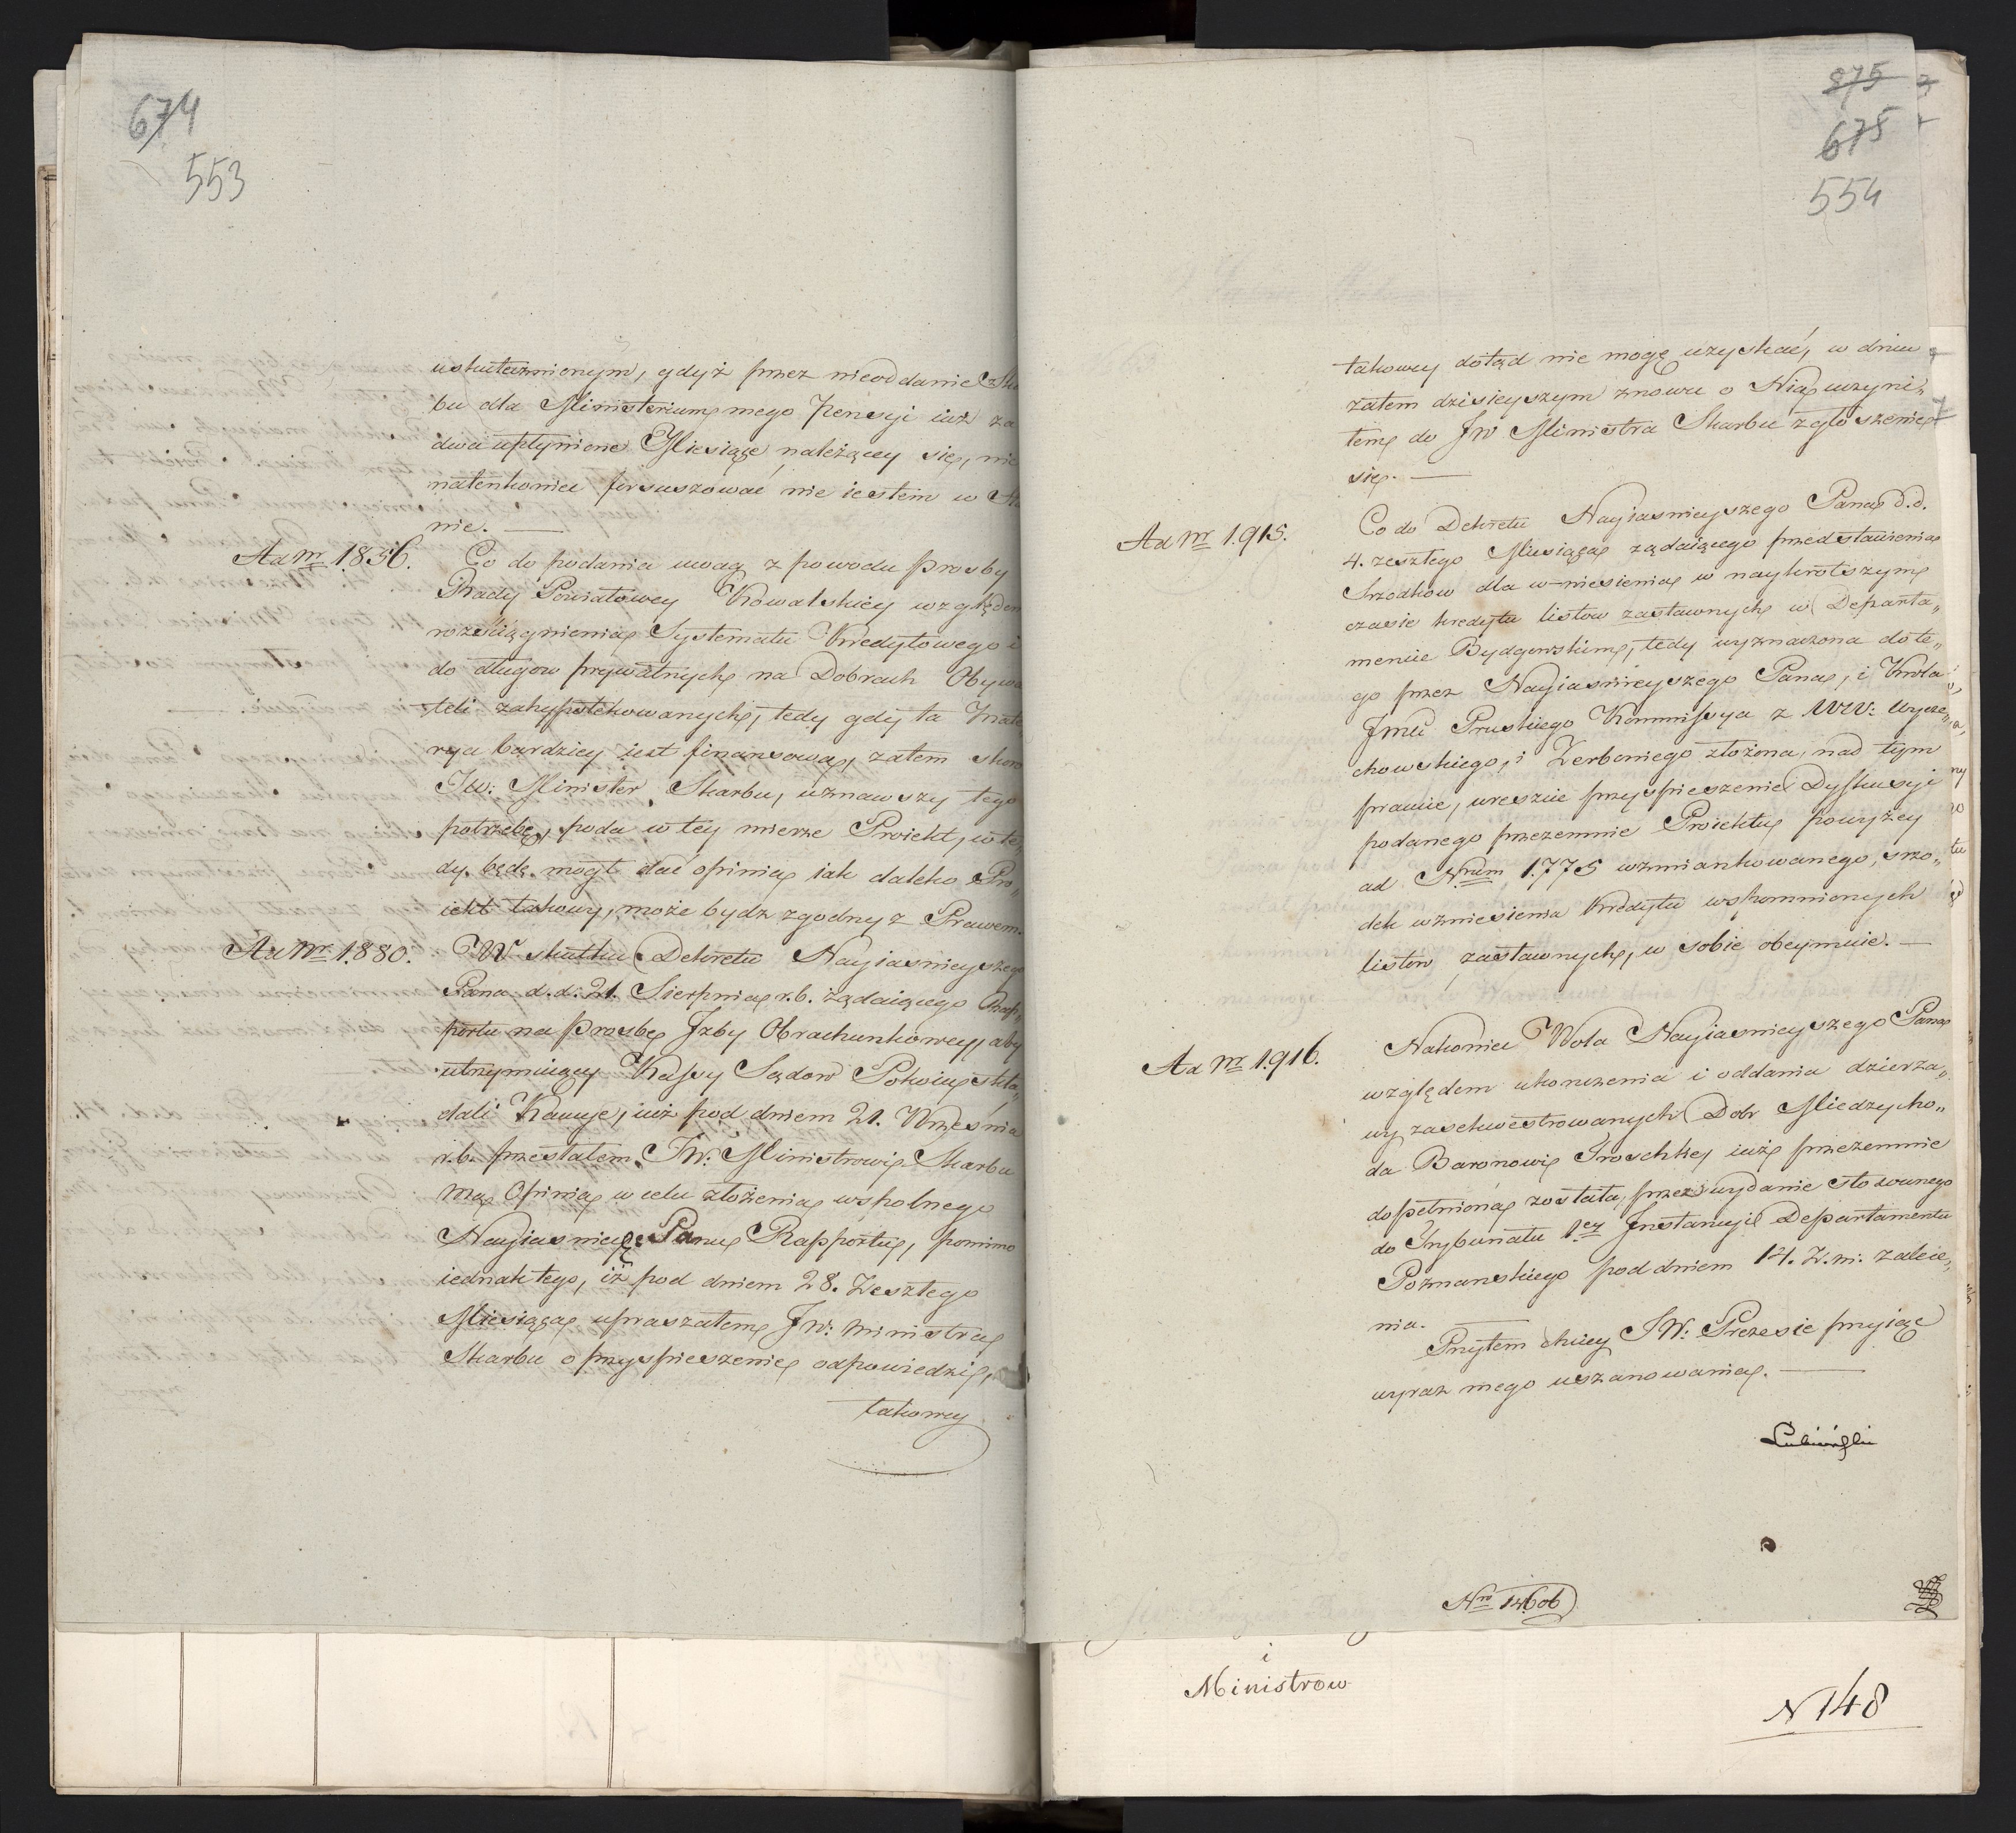 674
553
uskutecznionym, gdyż przez nieoddanie Ska
bu dla Ministerium mego Pensyi iuż za
dwa upłynione Miesiące należącey się, nic
natenkoniec forszuszować nie iestem w Sta
nie. —
Ad Nr 1.856. Co do podania uwag z powodu prosby
Rady Powiatowey Kowalskiey względem
rozściągnienia Systematu Kredytowego i
do długow prywatnych na Dobrach Obywa
teli zahypotekowanych, tedy gdy ta Mate
rya bardziey iest finansowa, zatem skoro
JW: Minister Skarbu, uznawszy tego
potrzebę, poda w tey mierze Proiekt, w te„
dy będę mógł dać opinią iak daleko Pro„
iekt takowy, może bydz zgodny z Prawem.
Ad Nr 1.880. W skutku Dekretu Nayiasnieyszego
Pana d.d. 21. Sierpnia r.b. żądaiącego Rap„
portu na prosbę Izby Obrachunkowey, aby
utrzymuiący Kassy Sądow Pokoiu skła„
dali Kaucye, iuż pod dniem 21. Września
r.b. przesłałem JW: Ministrowi Skarbu
mą Opinią w celu złożenia wspolnego
Nayiasniey: Panu Rapportu, pomimo
iednak tego, iż pod dniem 28. Zeszłego
Miesiąca upraszałem JW: Ministra
Skarbu o przyspieszenie odpowiedzi,
takowey
875
675
554
takowey dotąd nie mogę uzyskać, w dniu
zatem dzisieyszym znowu o Nią uczyni„
łem do JW Ministra Skarbu zgłoszenie
się. —
Ad Nr 1.915. Co do Dekretu Nayiasnieyszego Pana d.d.
4. zeszłego Miesiąca żądaiącego przedstawienia
Srzodkow dla w-niesienia w naykrotszym
czasie kredytu listow zastawnych w Departa„
mencie Bydgowskim, tedy wyznaczona do te„
go przez Nayiasnieyszego Pana, i Krola
Jmci Pruskiego Kommissya z WW: Wycze„
chowskiego, i Zerboniego złożona, nad tym
pracuie, wreszcie przyspieszenie Dyskussyi
podanego przezemnie Proiektu powyżey
ad Nrum 1.775 wzmiankowanego, srzo„
dek wzniesienia Kredytu wspomnionych
listow zastawnych, w sobie obeymuie. —
Ad Nr 1.916. Nakoniec Wola Nayiasnieyszego Pana
względem ukonczenia i oddania dzierza„
wy zasekwestrowanych Dobr Miedzycho„
da Baronowi Troschke, iuż przezemnie
dopełnioną została, przez wydanie stosownego
do Trybunału 1ey Instancyi Departamentu
Poznanskiego pod dniem 14. Z. m. zalece„
nia. —
Przytem chciey JW: Prezesie przyiąć
wyraz mego uszanowania. —
Lubieński
Nro 14606
i
Ministrow
N 148